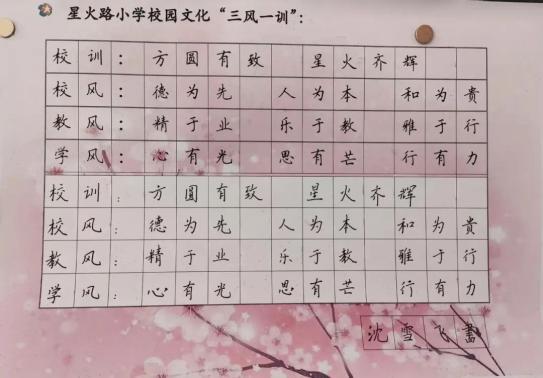 星火路小学校园文化“三风一训”：
校训：方圆有致 星火齐辉
校风：德为先 人为本 和为贵
教风：精于业 乐于教 雅于行
学风：心有光 思有芒 行有力
校训：方圆有致 星火齐辉
校风：德为先 人为本 和为贵
教风：精于业 乐于教 雅于行
学风：心有光 思有芒 行有力
沈雪飞書